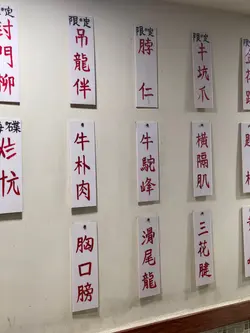 限定
封門柳
限定
吊龍伴
限定
脖仁
限定
牛坑爪
每碟
牛朴肉
牛駝峰
橫隔肌
胸口膀
滑尾龍
三花腱